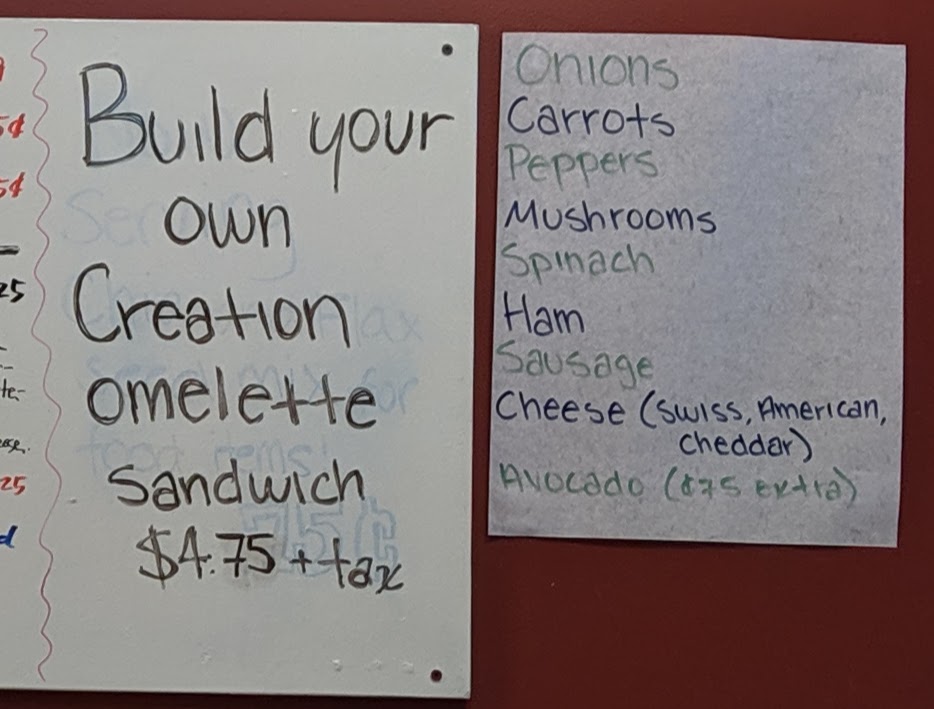 5¢
5¢
25
te-
25
d
Build your
own
Creation
omelette
sandwich
$4.75 + tax
Onions
Carrots
Peppers
Mushrooms
Spinach
Ham
Sausage
Cheese (Swiss, American,
Cheddar)
Avocado (¢75 extra)